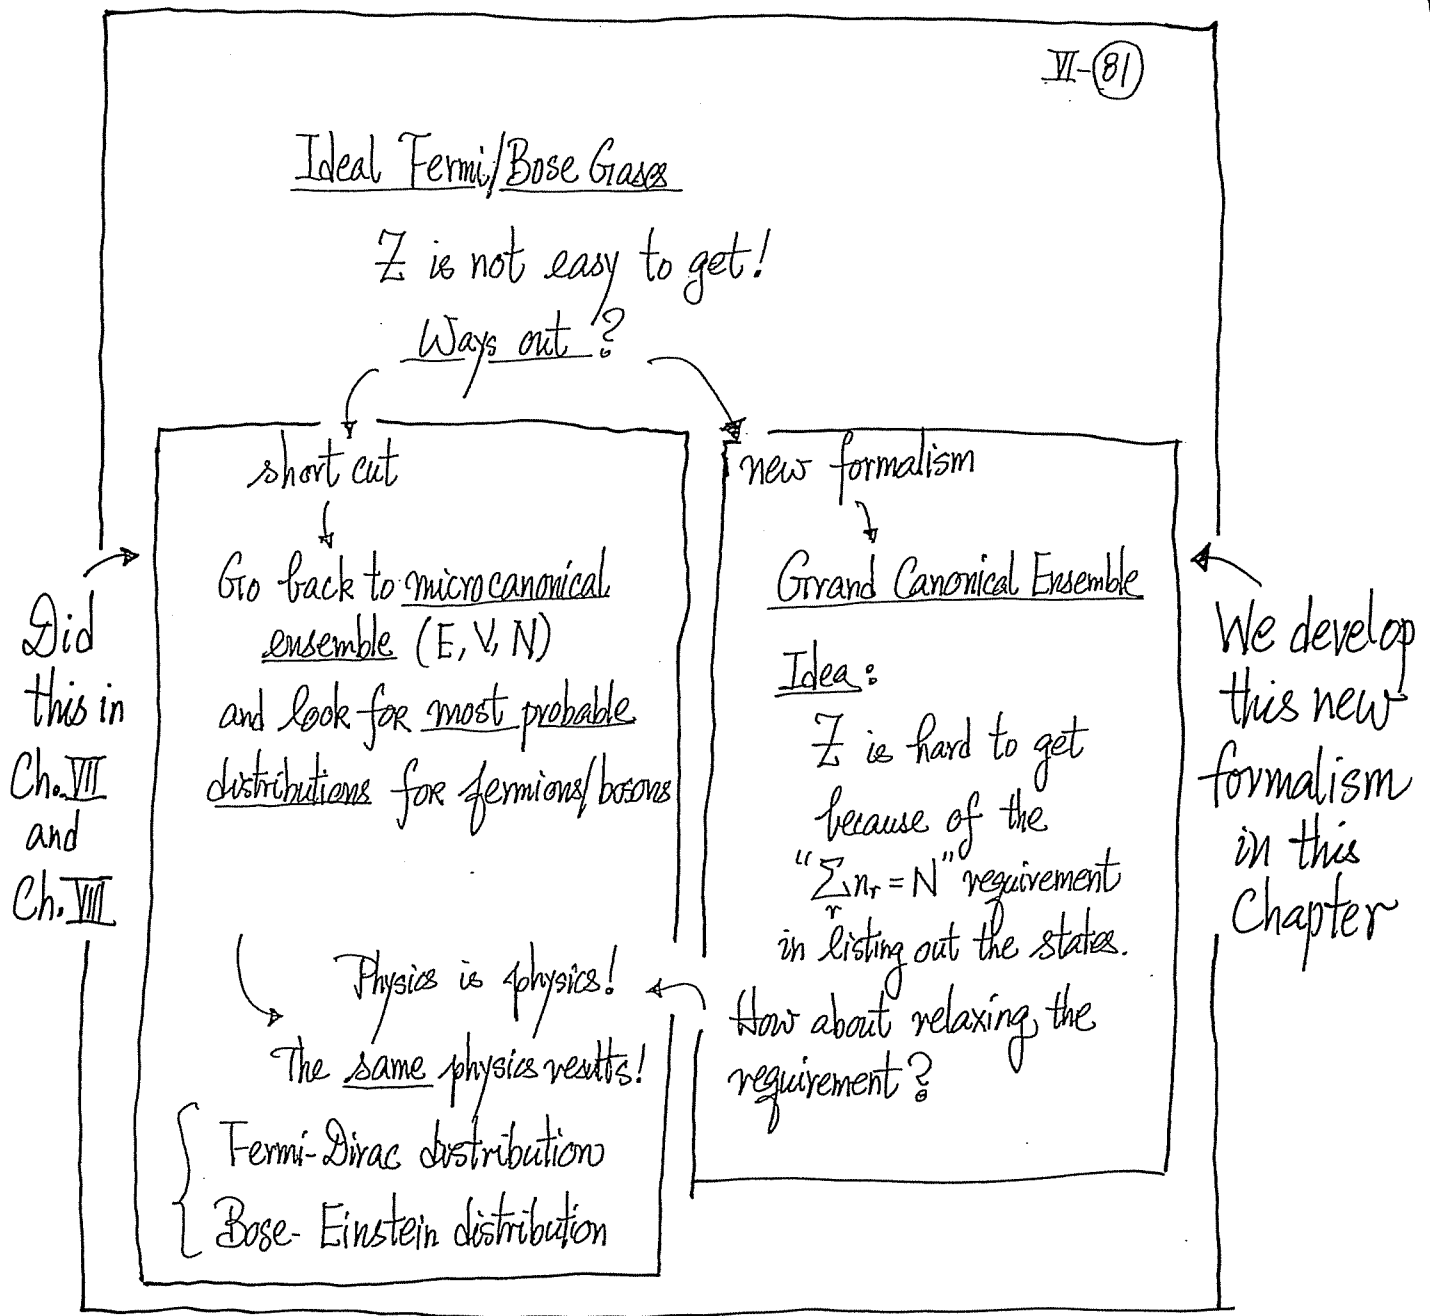 VI-81
Ideal Fermi/Bose Gases
Z is not easy to get!
Ways out?
short cut
Go back to microcanonical
ensemble (E, V, N)
and look for most probable
distributions for fermions/bosons
Physics is physics!
The same physics results!
Fermi-Dirac distribution
Bose-Einstein distribution
new formalism
Grand Canonical Ensemble
Idea:
Z is hard to get
because of the
"∑ nᵣ = N" requirement
r
in listing out the states.
How about relaxing the
requirement?
Did
this in
Ch. VII
and
Ch. VIII
We develop
this new
formalism
in this
Chapter